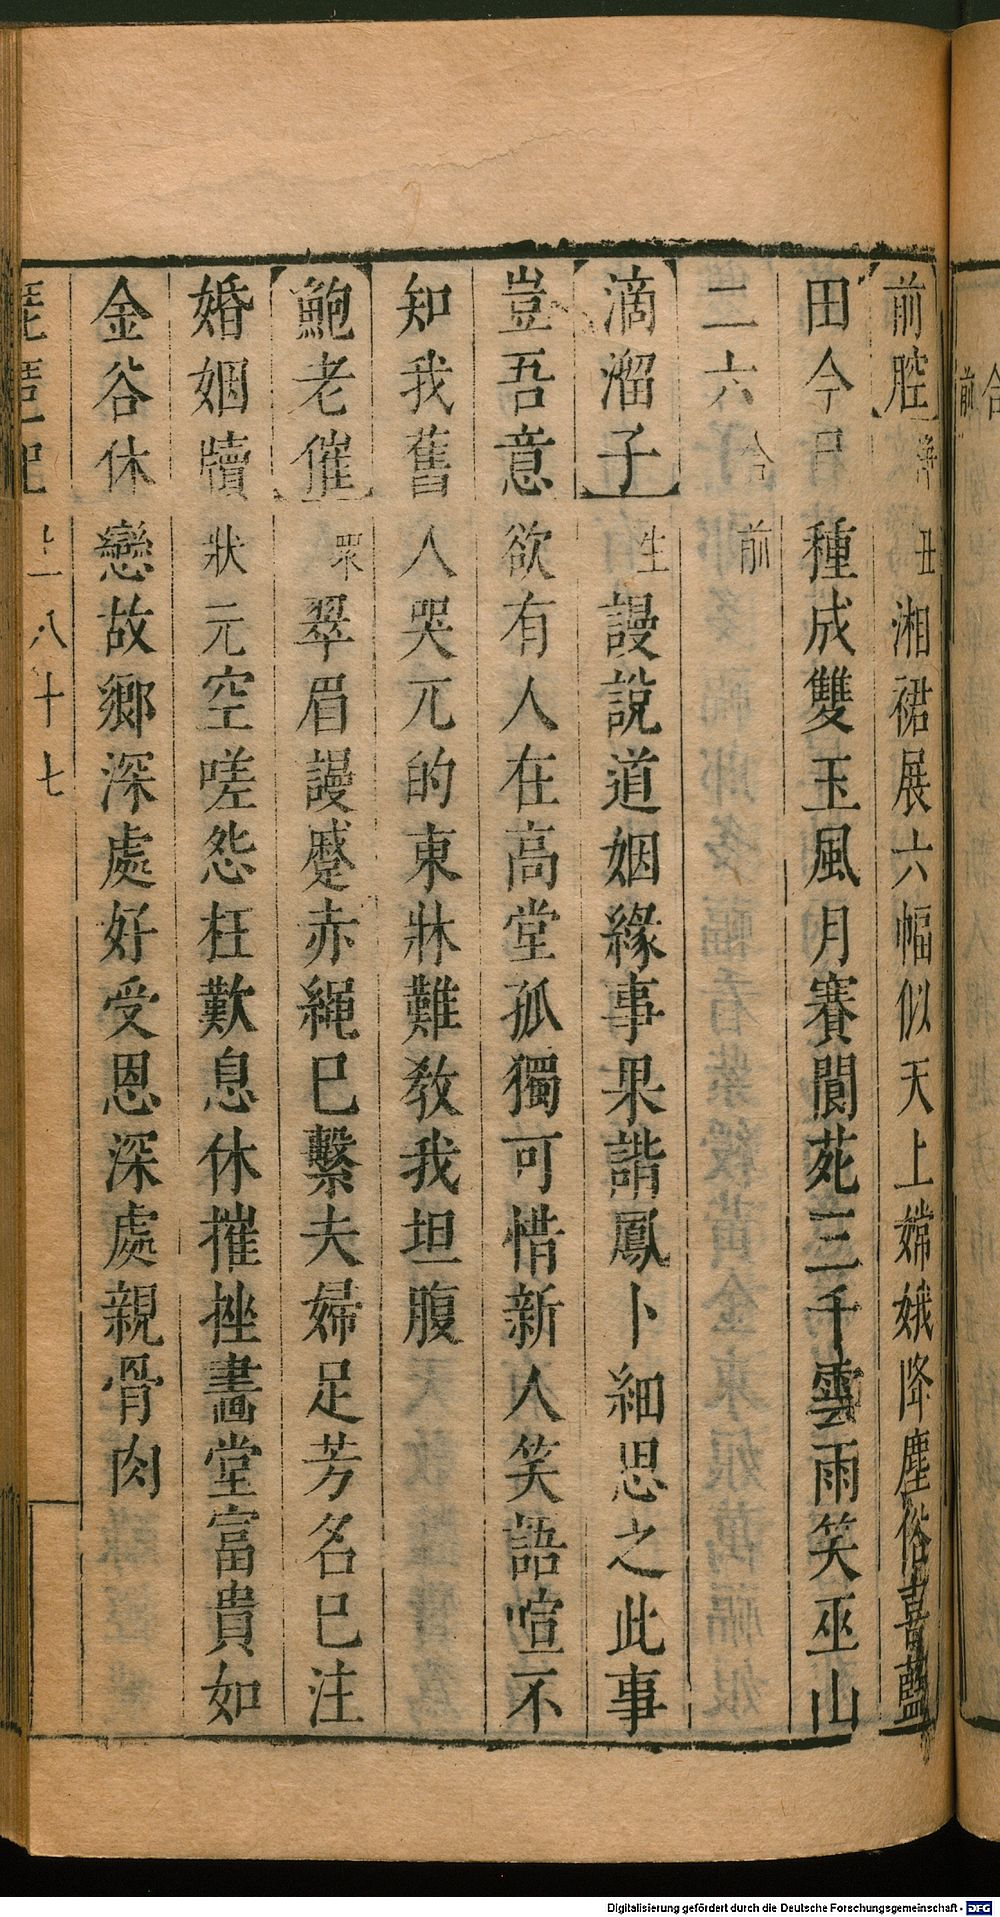 前腔 淨丑 湘裙展六幅似天上嫦娥降塵俗喜藍
田今日種成雙玉風月賽閬苑三千雲雨笑巫山
二六 合前
滴溜子 生 謾說道姻緣事果諧鳳卜細思之此事
豈吾意欲有人在高堂孤獨可惜新人笑語喧不
知我舊人哭兀的東牀難教我坦腹
鮑老催 眾 翠眉謾蹙赤繩巳繫夫婦足芳名巳注
婚姻牘狀元空嗟怨枉歎息休摧挫畫堂富貴如
金谷休戀故鄉深處好受恩深處親骨肉
琵琶記 上 八十七
合前
Digitalisierung gefördert durch die Deutsche Forschungsgemeinschaft - DFG